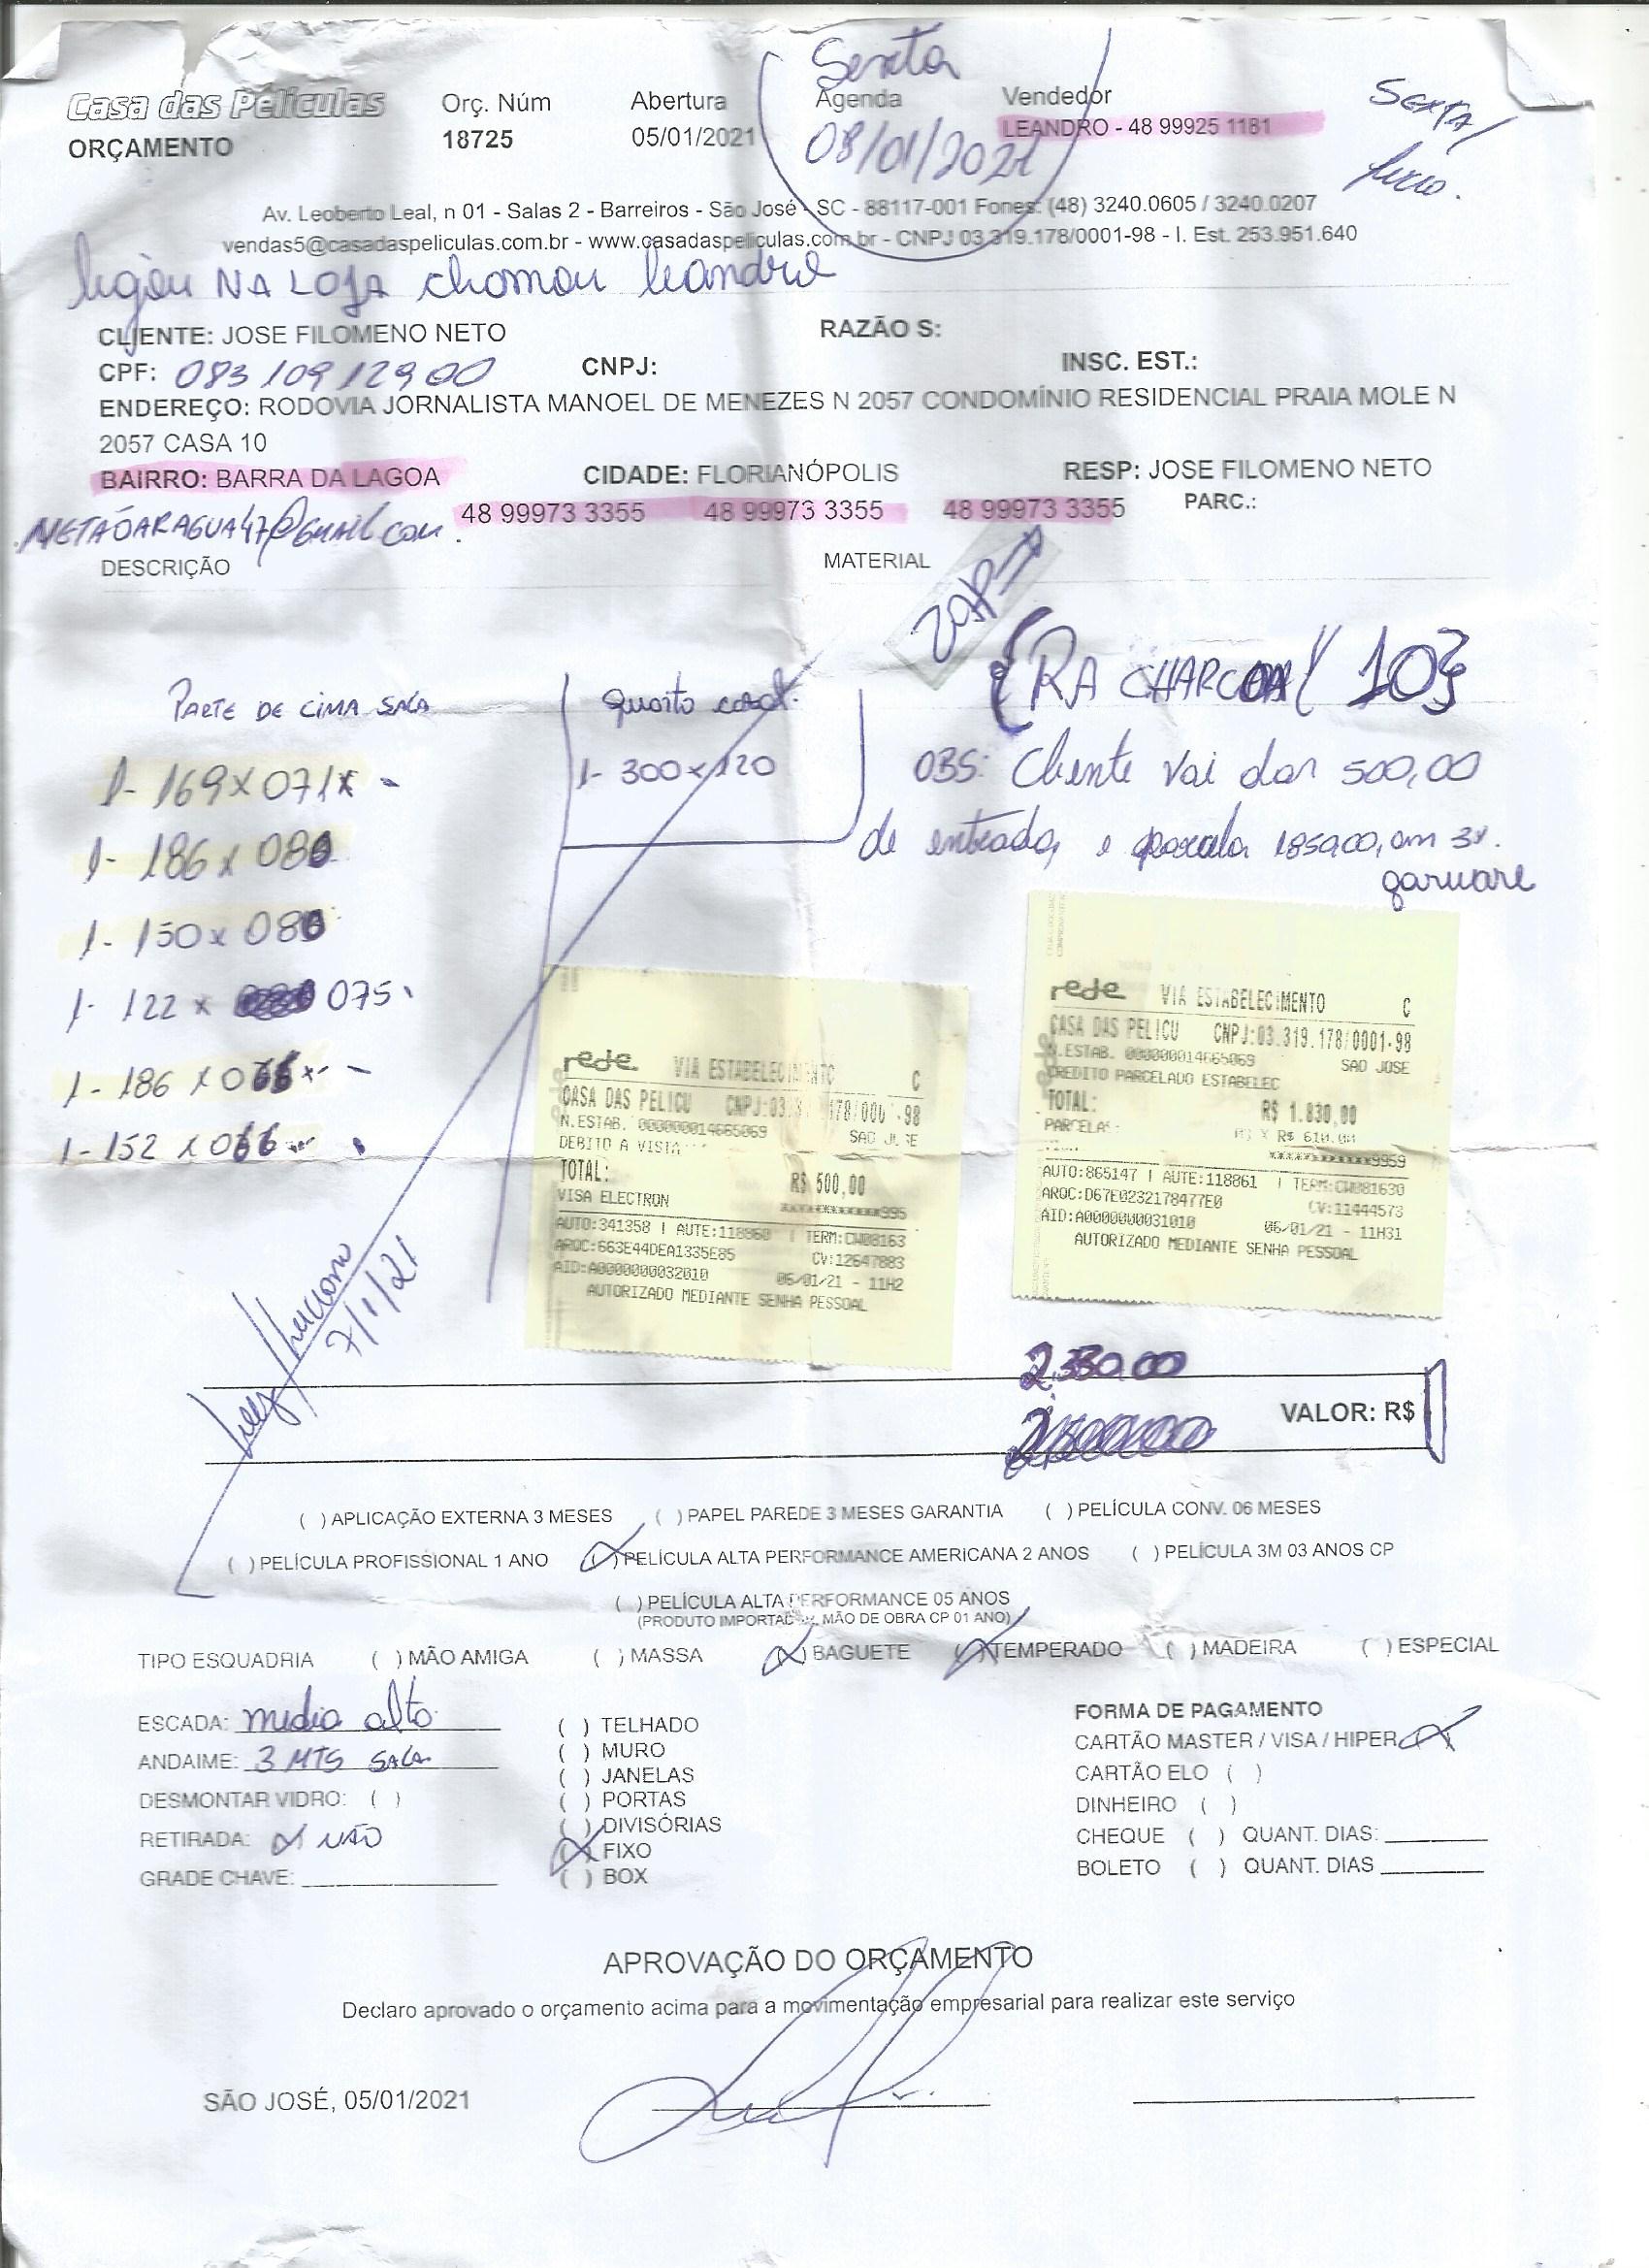 Sexta
Casa das Películas Orç. Núm Abertura Agenda Vendedor SEXTA/
ORÇAMENTO 18725 05/01/2021 08/01/2021 LEANDRO - 48 99925 1181
Av. Leoberto Leal, n 01 - Salas 2 - Barreiros - São José - SC - 88117-001 Fones: (48) 3240.0605 / 3240.0207
vendas5@casadaspeliculas.com.br - www.casadaspeliculas.com.br - CNPJ 03.319.178/0001-98 - I. Est. 253.951.640
ligou NA LOJA chamou leandro
CLIENTE: JOSE FILOMENO NETO RAZÃO S:
CPF: 083 109 129 00 CNPJ: INSC. EST.:
ENDEREÇO: RODOVIA JORNALISTA MANOEL DE MENEZES N 2057 CONDOMÍNIO RESIDENCIAL PRAIA MOLE N
2057 CASA 10
BAIRRO: BARRA DA LAGOA CIDADE: FLORIANÓPOLIS RESP: JOSE FILOMENO NETO
48 99973 3355 48 99973 3355 48 99973 3355 PARC.:
@gmail.com.
DESCRIÇÃO MATERIAL
ZAP
RA CHARCOAL 10
PARTE DE CIMA SALA Quarto casal.
1- 169 x 071 1- 300 x 120 OBS: Cliente vai dar 500,00
1- 186 x 080 de entrada, e parcela em 3x.
1- 150 x 080
1- 122 x 075
1- 186 x 066
1- 152 x 066
rede VIA ESTABELECIMENTO C
CASA DAS PELICU CNPJ:03.319.178/0001-98
N.ESTAB. 000000014665069 SAO JOSE
CREDITO PARCELADO ESTABELEC
TOTAL: R$ 1.830,00
PARCELAS: 03 X R$ 610,00
************9959
AUTO:865147 | AUTE:118861 | TERM:CW081630
ARQC:D67E0232178477E0 CV:11444573
AID:A0000000031010 06/01/21 - 11H31
AUTORIZADO MEDIANTE SENHA PESSOAL
rede VIA ESTABELECIMENTO C
CASA DAS PELICU CNPJ:03.3 178/000 -98
N.ESTAB. 000000014665069 SAO JOSE
DEBITO A VISTA
TOTAL: R$ 500,00
VISA ELECTRON ************995
AUTO:341358 | AUTE:118860 | TERM:CW08163
ARQC:663E44DEA1335E85 CV:12647883
AID:A0000000032010 06/01/21 - 11H2
AUTORIZADO MEDIANTE SENHA PESSOAL
Luciano
7/1/21
2.330,00
VALOR: R$
( ) APLICAÇÃO EXTERNA 3 MESES ( ) PAPEL PAREDE 3 MESES GARANTIA ( ) PELÍCULA CONV. 06 MESES
( ) PELÍCULA PROFISSIONAL 1 ANO (X) PELÍCULA ALTA PERFORMANCE AMERICANA 2 ANOS ( ) PELÍCULA 3M 03 ANOS CP
( ) PELÍCULA ALTA PERFORMANCE 05 ANOS
(PRODUTO IMPORTADO, MÃO DE OBRA CP 01 ANO)
TIPO ESQUADRIA ( ) MÃO AMIGA ( ) MASSA (X) BAGUETE (X) TEMPERADO ( ) MADEIRA ( ) ESPECIAL
ESCADA: media alta
ANDAIME: 3 MTS SALA
DESMONTAR VIDRO: ( )
RETIRADA: X NÃO
GRADE CHAVE:
( ) TELHADO
( ) MURO
( ) JANELAS
( ) PORTAS
( ) DIVISÓRIAS
(X) FIXO
( ) BOX
FORMA DE PAGAMENTO
CARTÃO MASTER / VISA / HIPER (X)
CARTÃO ELO ( )
DINHEIRO ( )
CHEQUE ( ) QUANT. DIAS:
BOLETO ( ) QUANT. DIAS
APROVAÇÃO DO ORÇAMENTO
Declaro aprovado o orçamento acima para a movimentação empresarial para realizar este serviço
SÃO JOSÉ, 05/01/2021